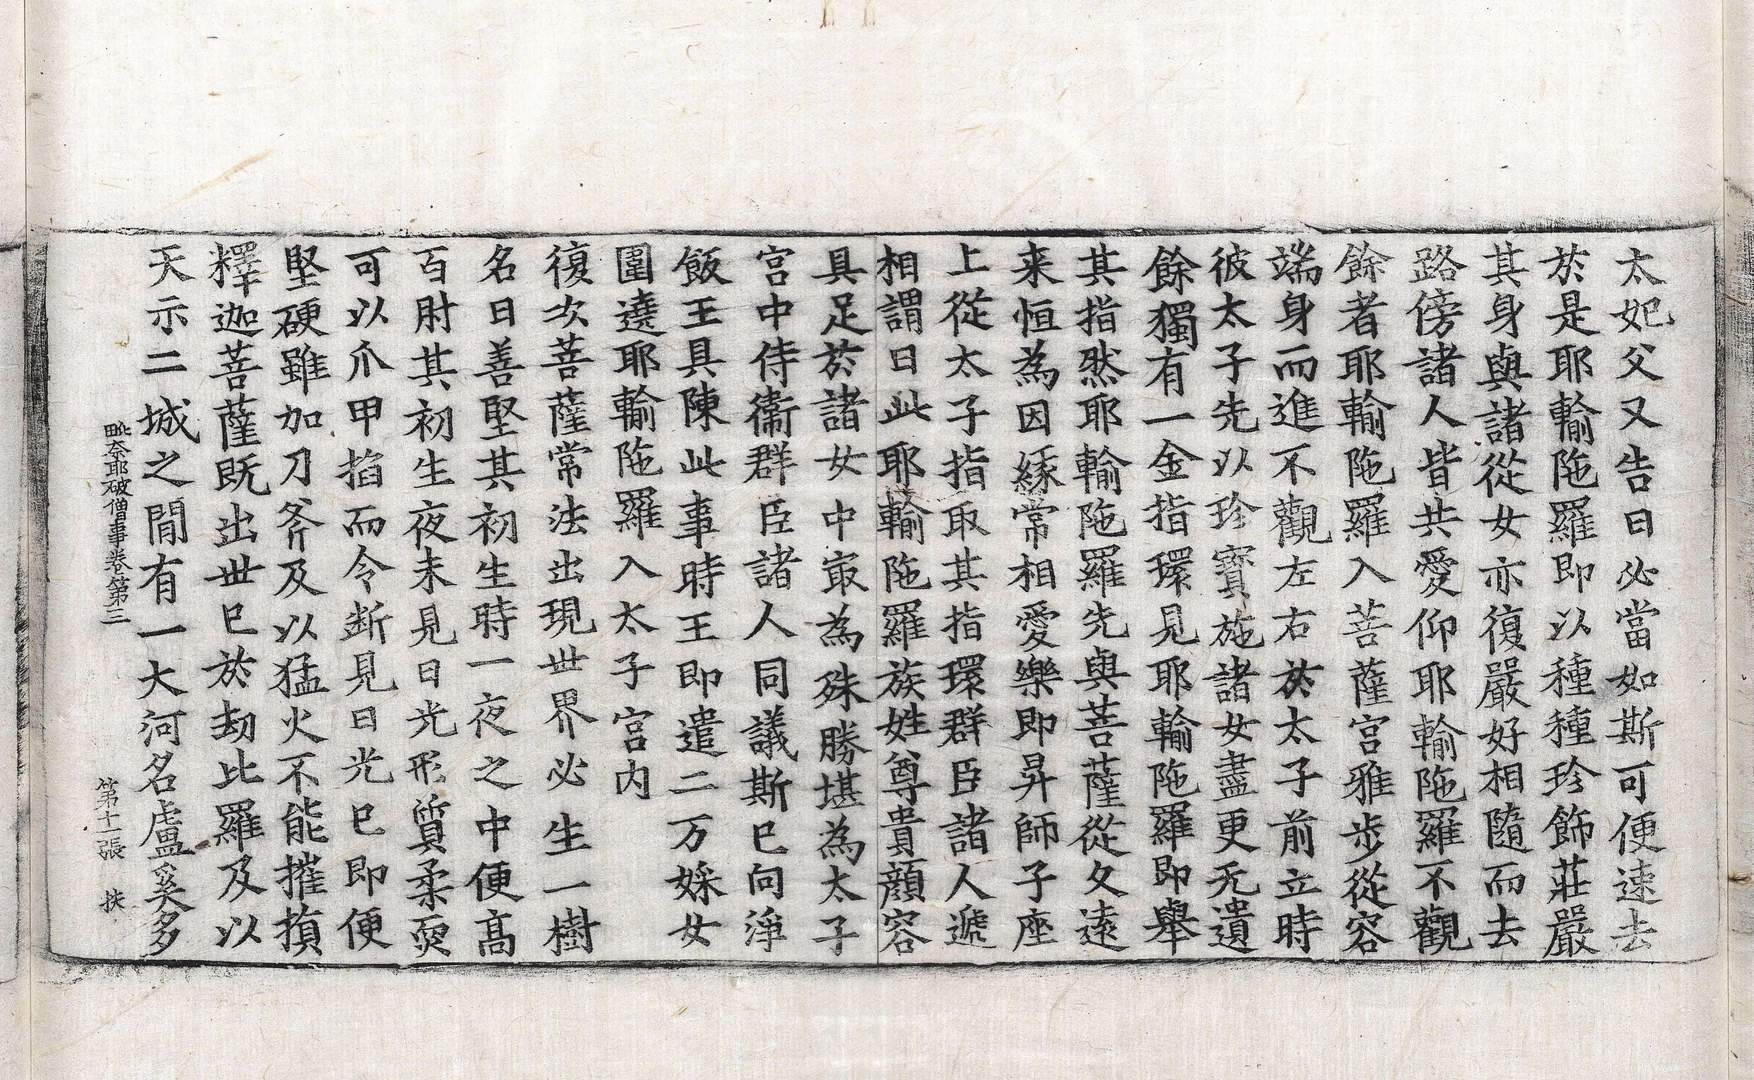 太妃父又告曰必當如斯可便速去
於是耶輸陁羅即以種種珍飾莊嚴
其身與諸從女亦復嚴好相隨而去
路傍諸人皆共愛仰耶輸陁羅不觀
餘者耶輸陁羅入菩薩宮雅步從容
端身而進不觀左右於太子前立時
彼太子先以珍寶施諸女盡更无遺
餘獨有一金指環見耶輸陁羅即舉
其指然耶輸陁羅先與菩薩從久遠
来恒為因緣常相愛樂即昇師子座
上從太子指取其指環群臣諸人遞
相謂曰此耶輸陁羅族姓尊貴顔容
具足於諸女中㝡為殊勝堪為太子
宮中侍衛群臣諸人同議斯已向淨
飯王具陳此事時王即遣二万婇女
圍遶耶輸陁羅入太子宮内
復次菩薩常法出現世界必生一樹
名曰善堅其初生時一夜之中便高
百肘其初生夜未見日光形質柔耎
可以爪甲掐而令断見日光已即便
堅硬雖加刀斧及以猛火不能摧損
釋迦菩薩既出世已於劫比羅及以
天示二城之閒有一大河名盧奚多
毗奈耶破僧事卷第三 第十一張 扶